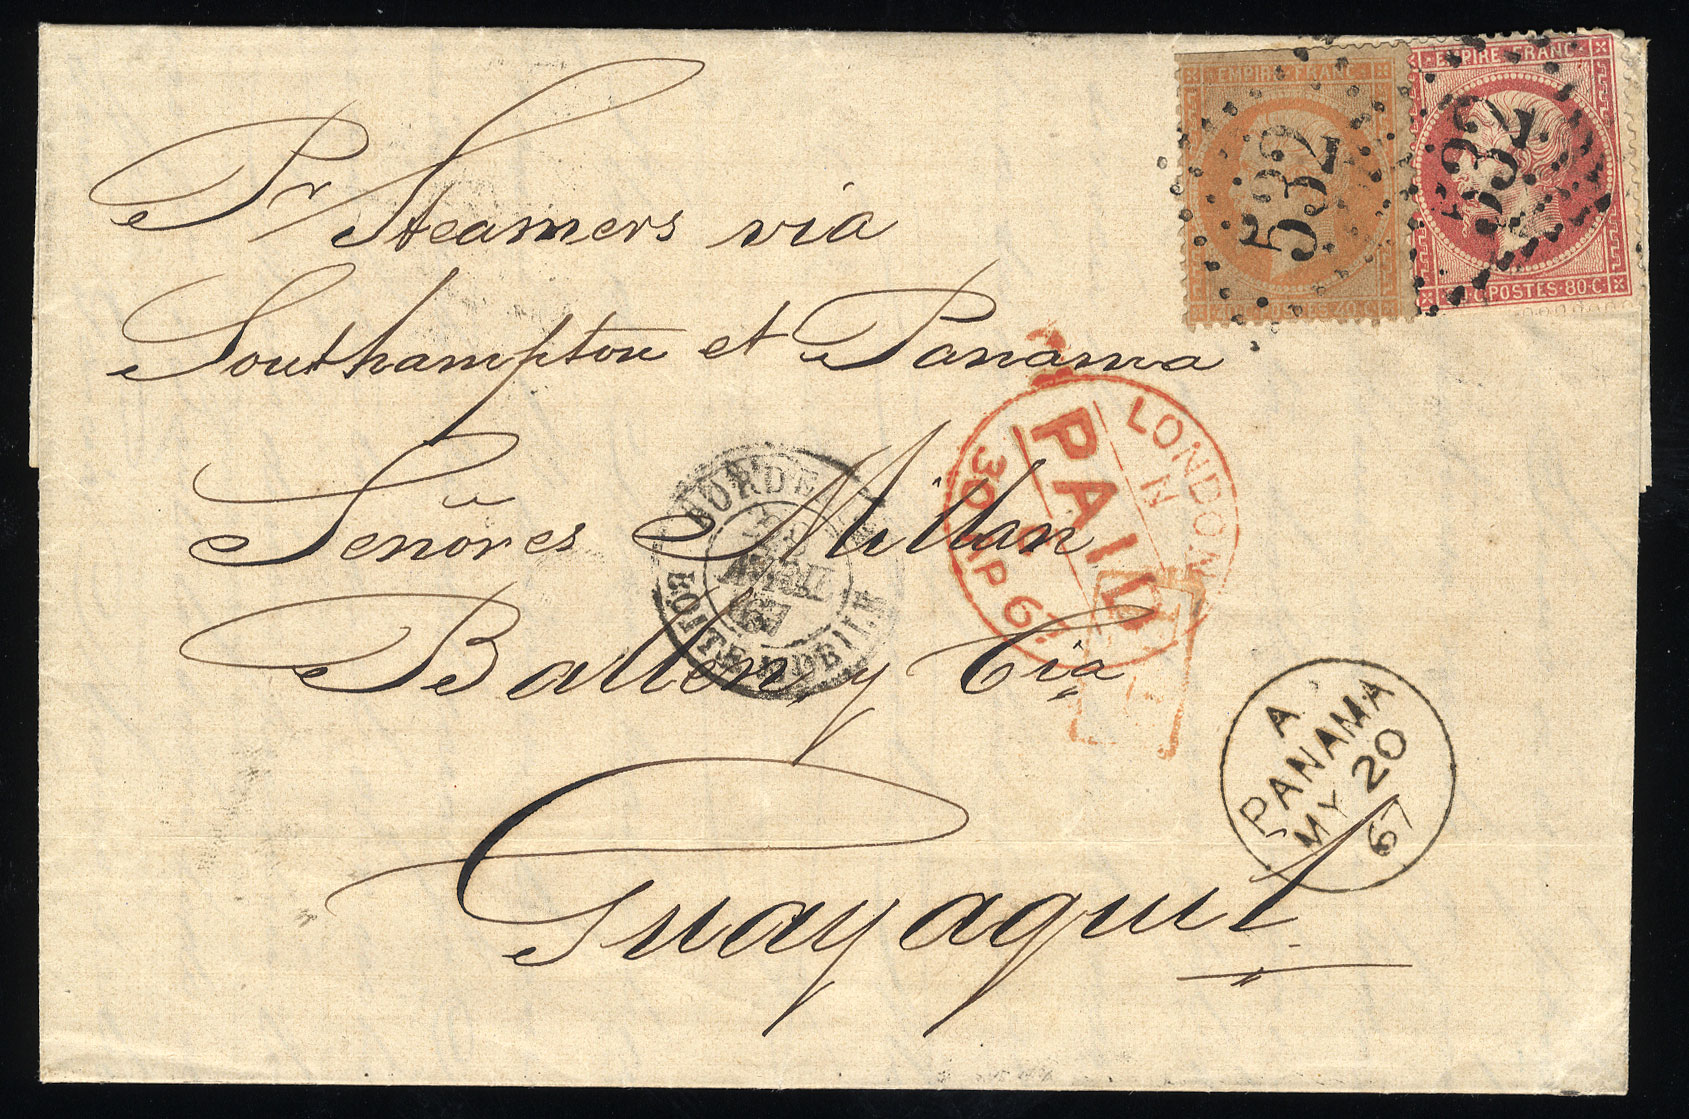 Pr Steamers via
Southampton et Panama
Señores Millan
Ballen y Cia
Guayaquil
EMPIRE FRANC
532
40 C POSTES 40 C
EMPIRE FRANC
532
C POSTES 80 C
LONDON
N
PAID
3 AP 67
BORDEAUX
AVRIL
67
BOITE MOBILE
A
PANAMA
MY 20
67